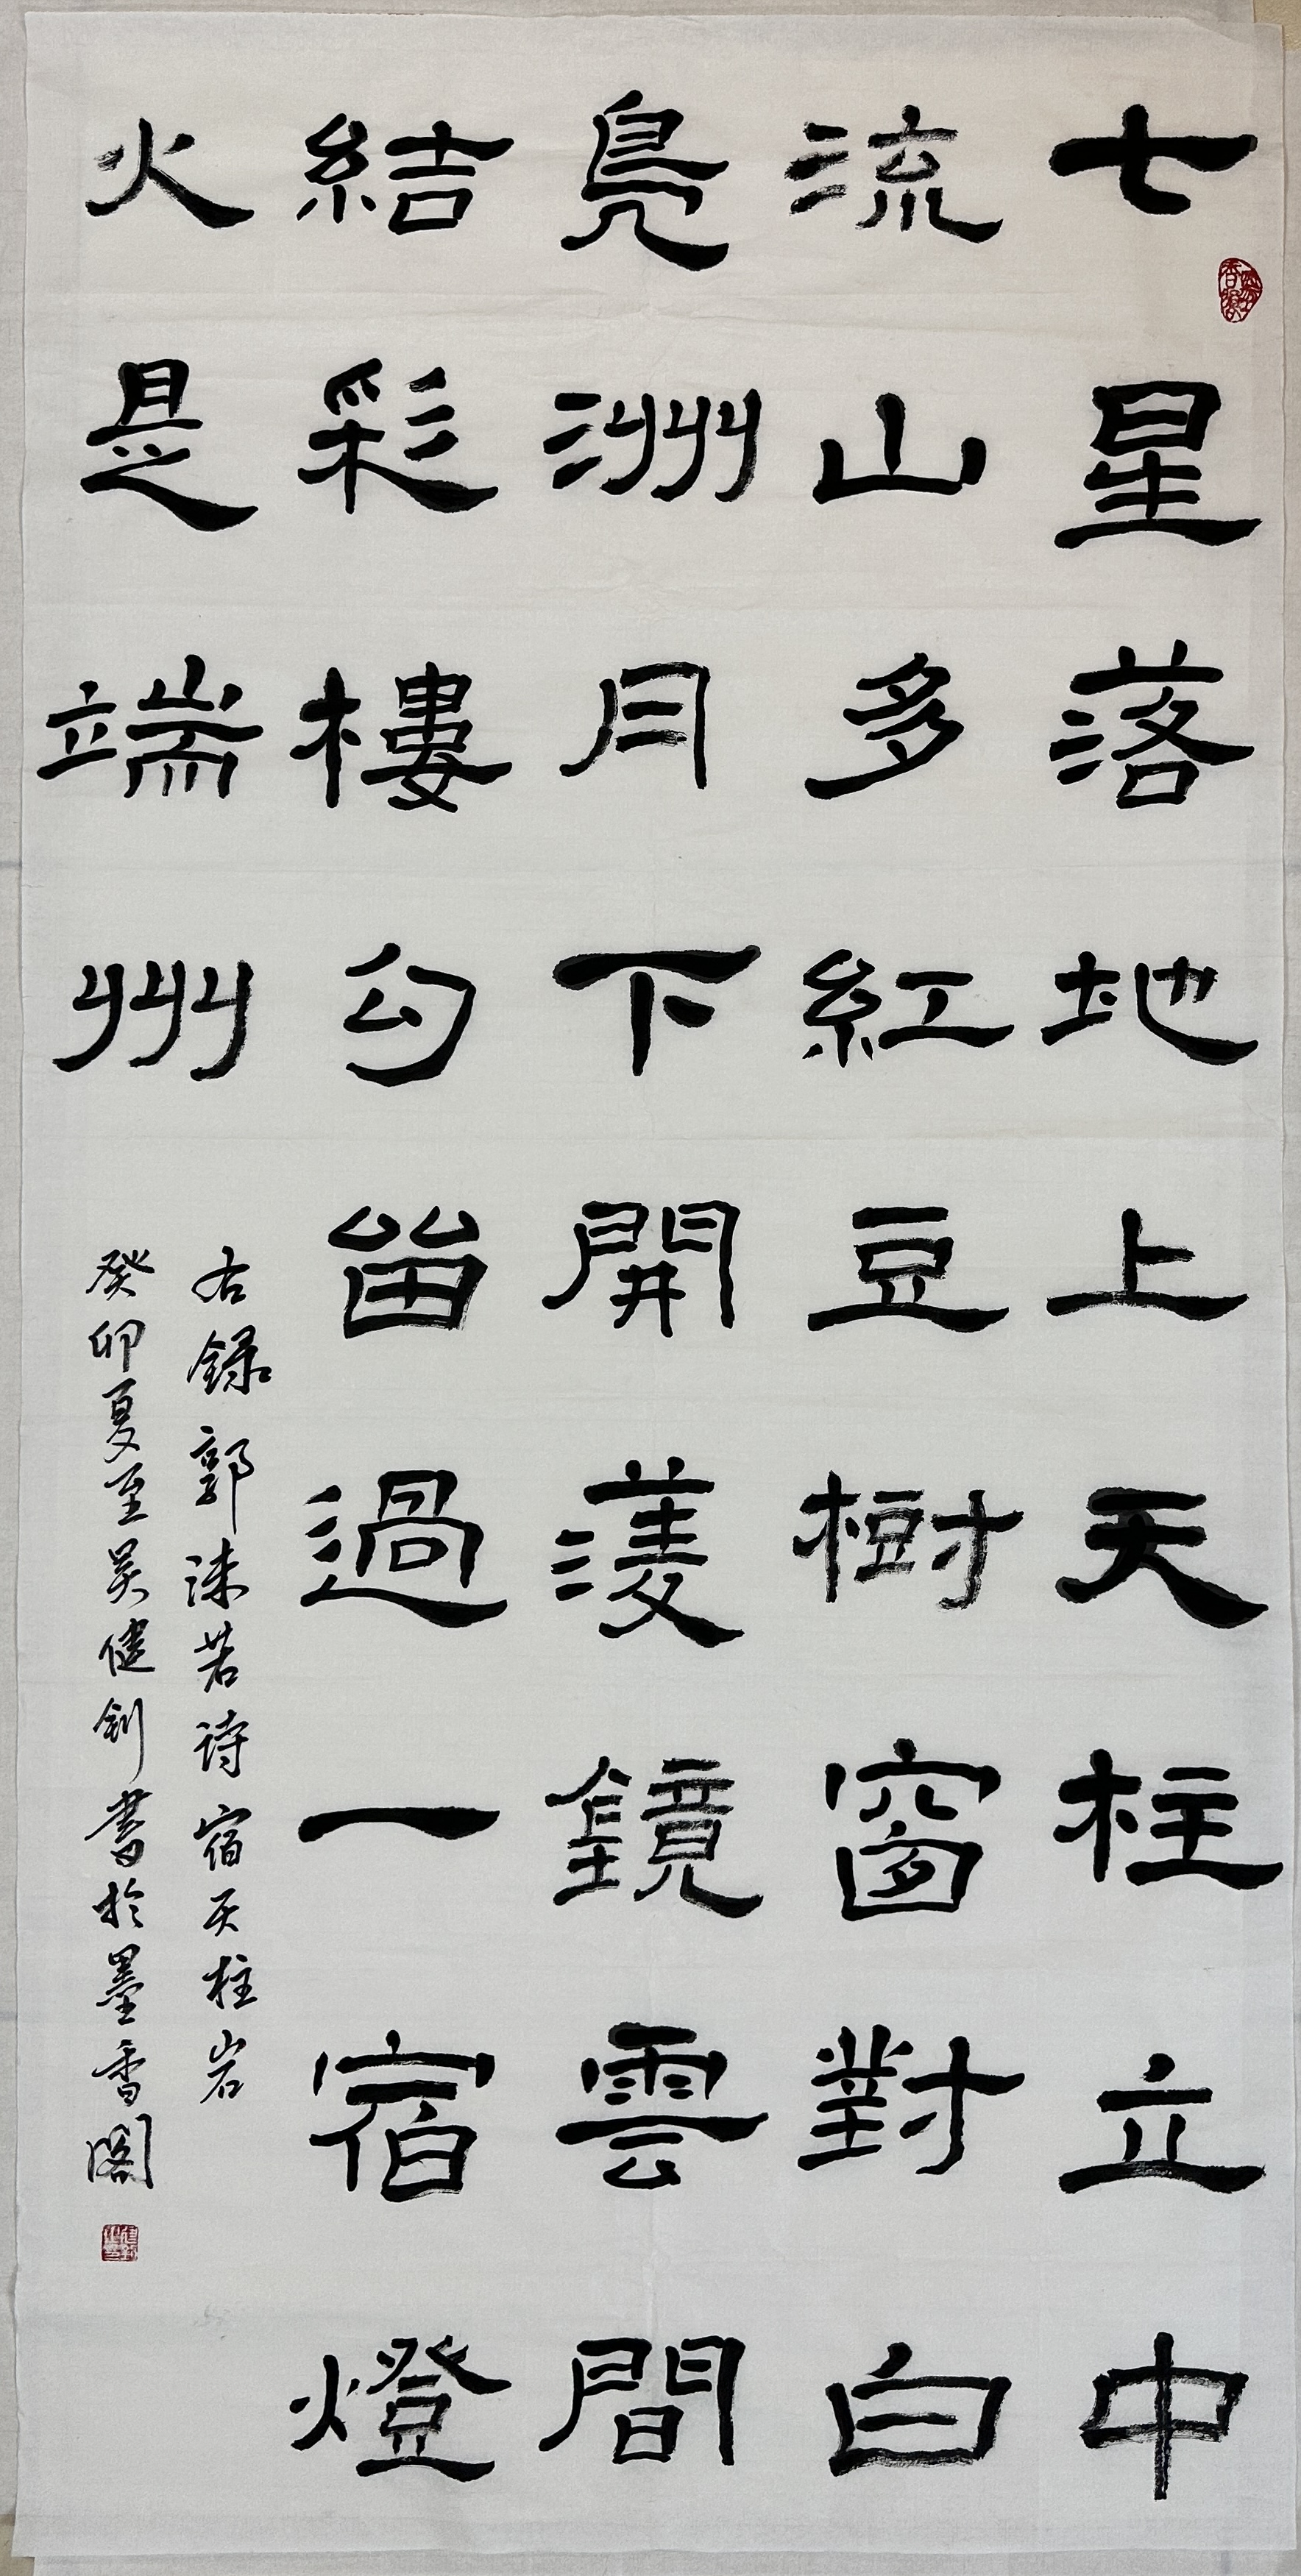 七星落地上天柱立中
流山多紅豆樹窗對白
鳧洲月下開蔆鏡雲間
結彩樓勾留過一宿燈
火是端州
右録郭沫若诗宿天柱岩
癸卯夏至吴健釗書於墨香閣